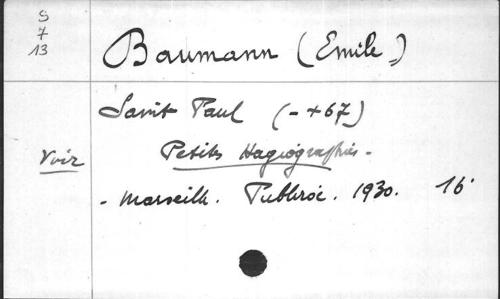 S
7
13
Baumann (Emile)
Saint Paul (- +67)
Voir Petits Hagiographies -
- Marseille. Publiroc. 1930. 16°